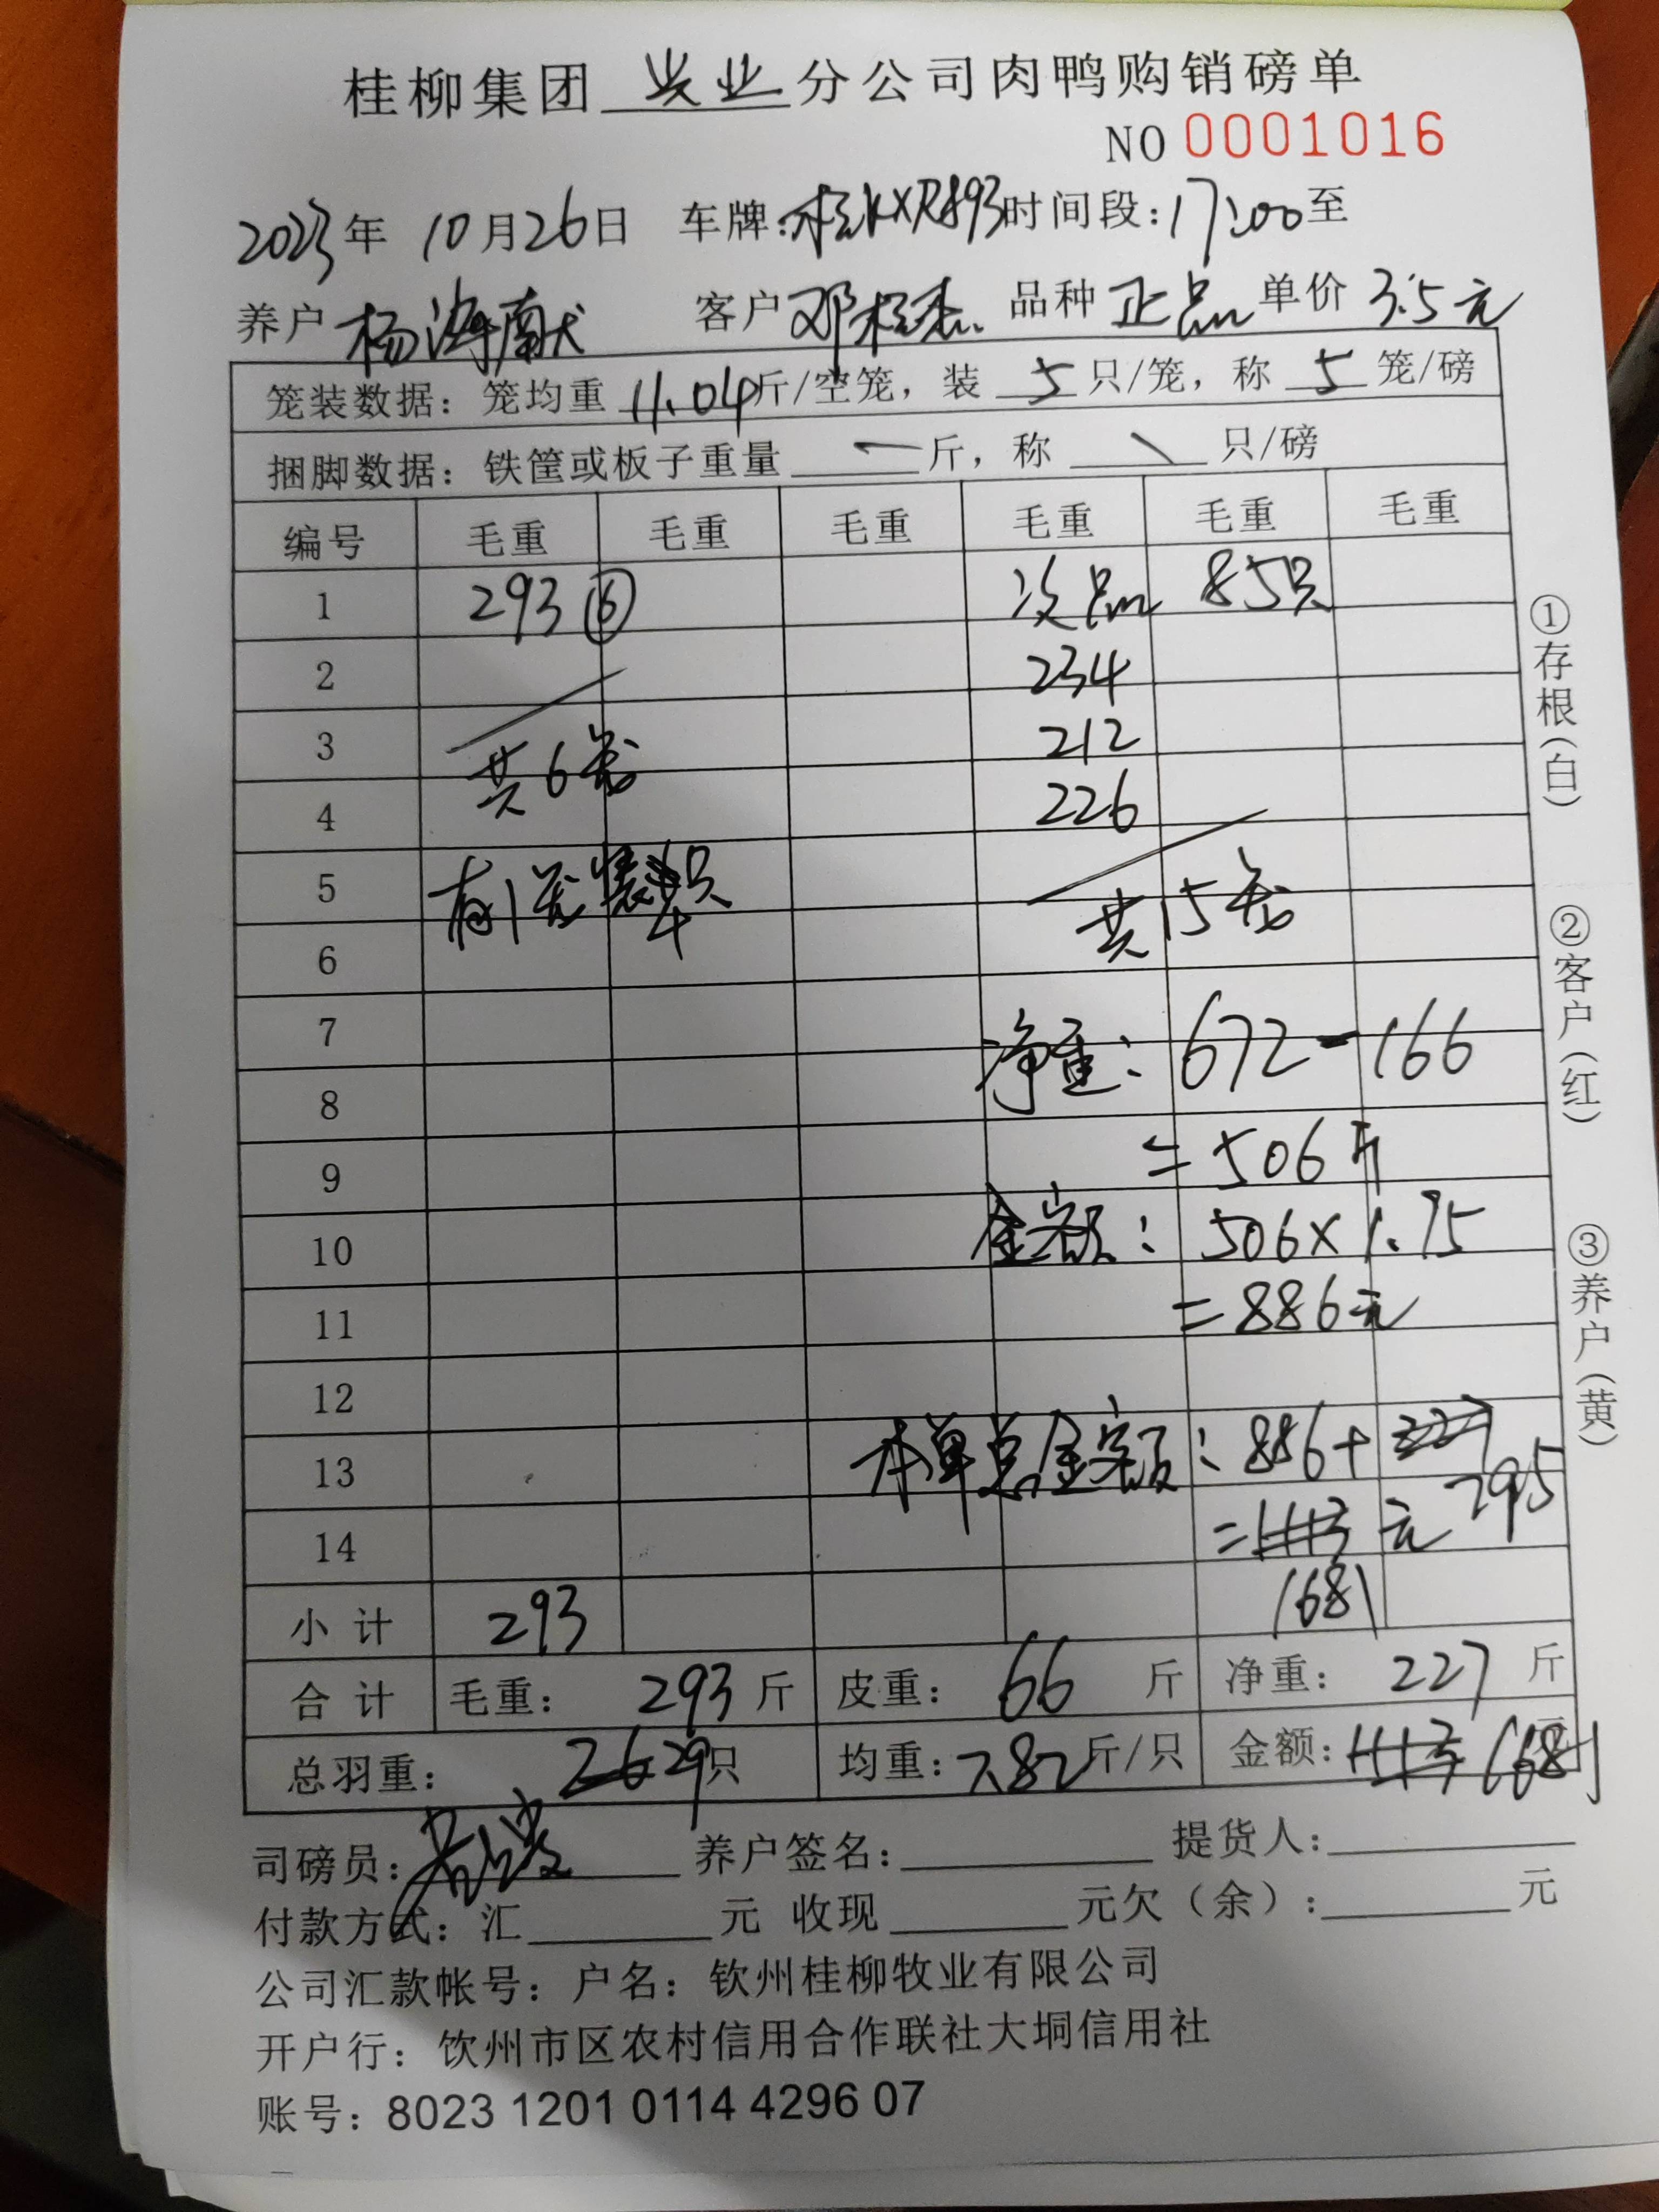 桂柳集团 兴业 分公司肉鸭购销磅单
NO 0001016
2023年 10月26日 车牌:桂KXR893 时间段:17:00至
养户 杨 献 客户 邓桂杰 品种 正品 单价 3.5元
笼装数据: 笼均重 11.04斤/空笼, 装 5 只/笼, 称 5 笼/磅
捆脚数据: 铁筐或板子重量 斤, 称 只/磅
编号 毛重 毛重 毛重 毛重 毛重 毛重
1 293 ⑥ 次品 85只
2 234
3 共6笼 212
4 226
5 有1笼装4只 共15笼
6
7 净重: 672-166
8
9 =506斤
10 金额: 506×1.75
11 =886元
12
13 本单总金额: 886+227 795
14 =1113元
1681
小计 293
合计 毛重: 293斤 皮重: 66 斤 净重: 227 斤
总羽重: 26 29只 均重: 7.82斤/只 金额: 1113 1681
司磅员: 养户签名: 提货人:
付款方式: 汇 元 收现 元欠(余): 元
公司汇款帐号: 户名: 钦州桂柳牧业有限公司
开户行: 钦州市区农村信用合作联社大垌信用社
账号: 8023 1201 0114 4296 07
①存根(白)
②客户(红)
③养户(黄)